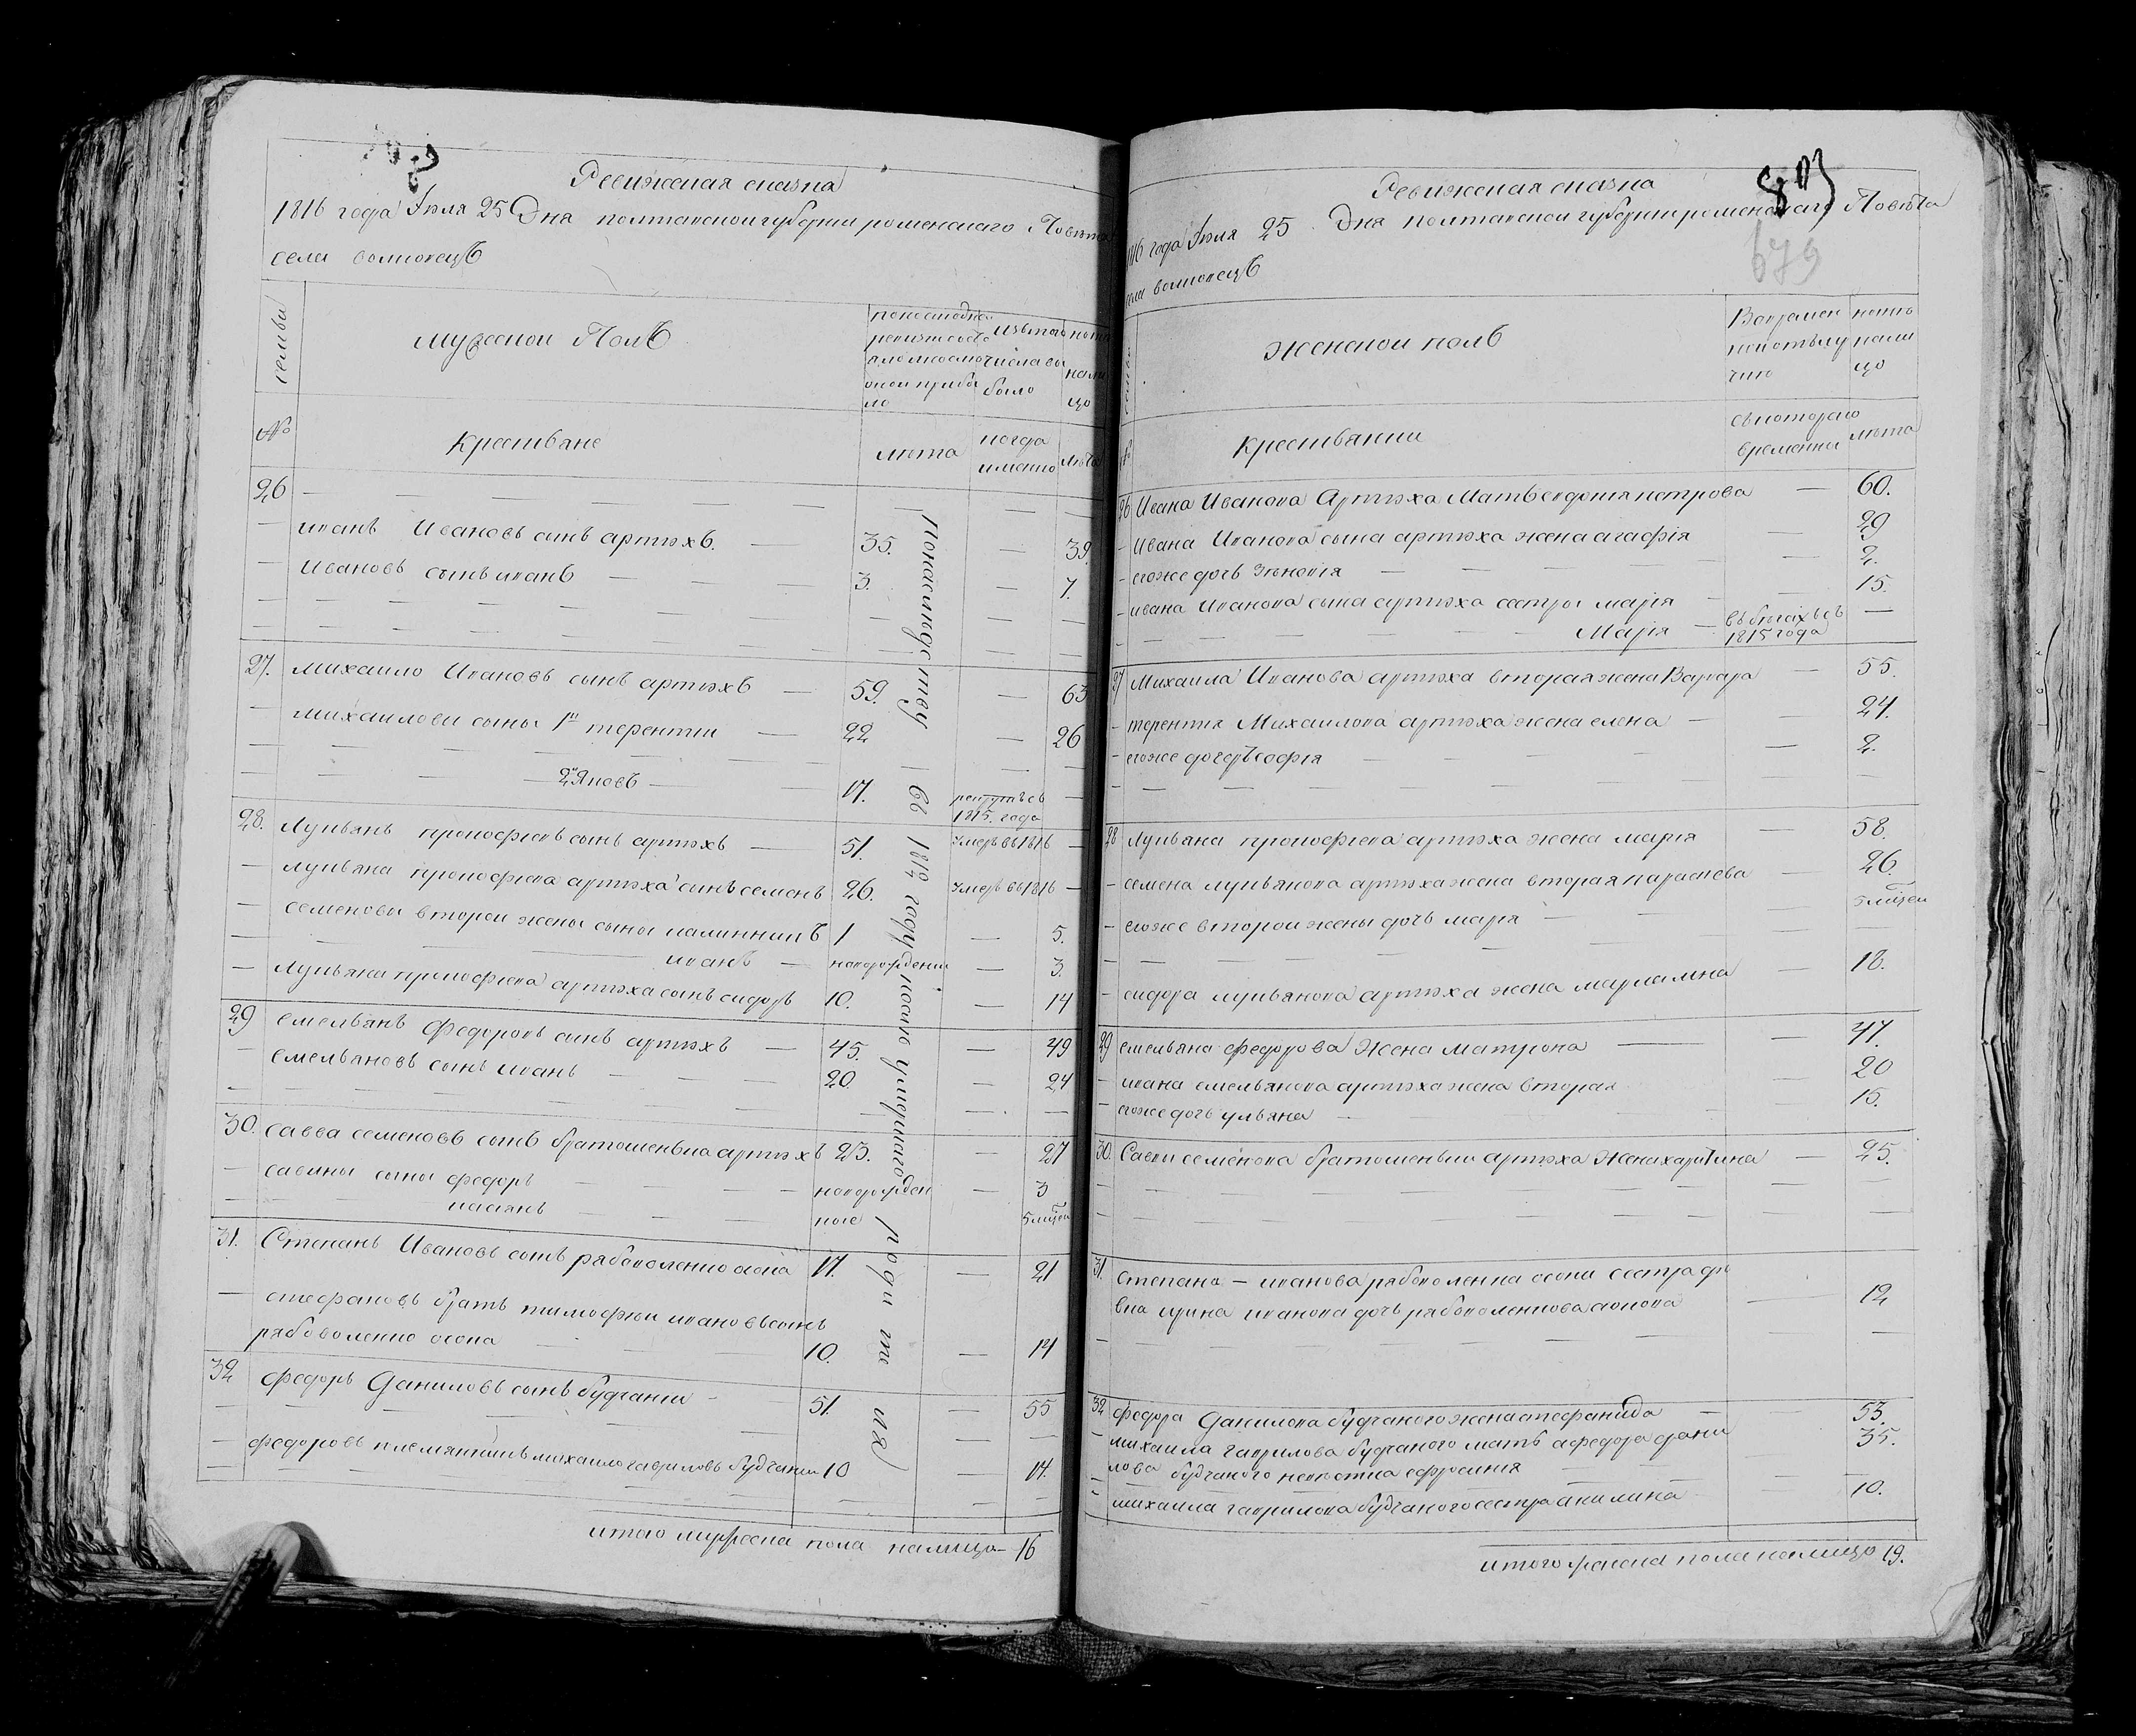 Ревижская сказка
1816 года Іюля 25 Дня полтавской губернии роменского Повѣта
села волковецъ
семьи
мужеской Полъ
по последней
ревизии состо
яло и после
оной прибы
ло
изъ того
числа вы
было
ныне
нали
цо
№
Крестьяне
лѣта
когда
именно
лѣта
26
иванъ Ивановъ синъ артюхъ. 35. 39.
Ивановъ сынъ иванъ 3. 7.
27. михаило Ивановъ синъ артюхъ 59. 63
михаилови сыны 1й терентии 22 26
2й Яковъ 17. рекрутъ съ
1815. года
28. Лукьянъ прокофиевъ сынъ артюхъ 51. Умеръ въ 1816
лукьяна прокофиева артюха синъ семенъ 26. Умеръ въ 1816
семенови второи жены сыны калинникъ 1 5.
иванъ новорожденни 3.
лукьяна прокофиева артюха сынъ сидоръ 10. 14
29 емельянъ Федоровъ синъ артюхъ 45. 49
емельяновъ сынъ иванъ 20. 24
30. савва семеновъ сынъ братошенька артюхъ 23. 27
савины сыны федоръ новорожден 3
касіянъ ные 5 мцей
31. Степанъ Ивановъ сынъ рябоволенко 17. 21
стефановъ братъ тимофеи ивановъ сынъ
рябоволенко 10. 14
32 федоръ Даниловъ сынъ будчании 51. 55
федоровъ племянникъ михаило гавриловъ будчании 10 14.
въ 1812 году
итого мужеска пола налицо 16
803
Ревижская сказка
1816 года Іюля 25 Дня полтавской губернии роменского Повѣта
679
села волковецъ
женской полъ
Во времен
ной отлу
чке
ныне
нали
цо
№
крестьянки
съ которого
времени
лѣта
26 Ивана Иванова Артюха Мать евдокия петрова 60.
ивана Иванова сына артюха жена агафія 29
егоже дочь зѣновія 2.
ивана Иванова сына артюха сестры марія 15.
Марія въ бѣгахъ съ
1815 года
27 Михаила Иванова артюха вторая жена Варвара 55.
терентия Михаилова артюха жена елена 24.
егоже дочерь софія 2.
28 лукьяна прокофиева артюха жена марія 58.
семена лукьянова артюха жена вторая параскева 26.
егоже второи жены дочь марія 5 мцей
сидора лукьянова артюха жена мариамна 18.
29 емельяна федорова жена матрона 47.
ивана емельянова артюха жена вторая 20
егоже дочь ульяна 15.
30. Савви семенова братошеньки артюха жена харитина 25.
31. степана иванова рябоволенка сестра
ирина иванова дочь рябоволенкова 12
32 федора Данилова будчаного жена стефанида 53.
михаила гаврилова будчаного мать а федора дани 35.
лова будчаного невѣстка ефросиния
михаила гаврилова будчаного сестра акилина 10.
итого женска пола налицо 19.